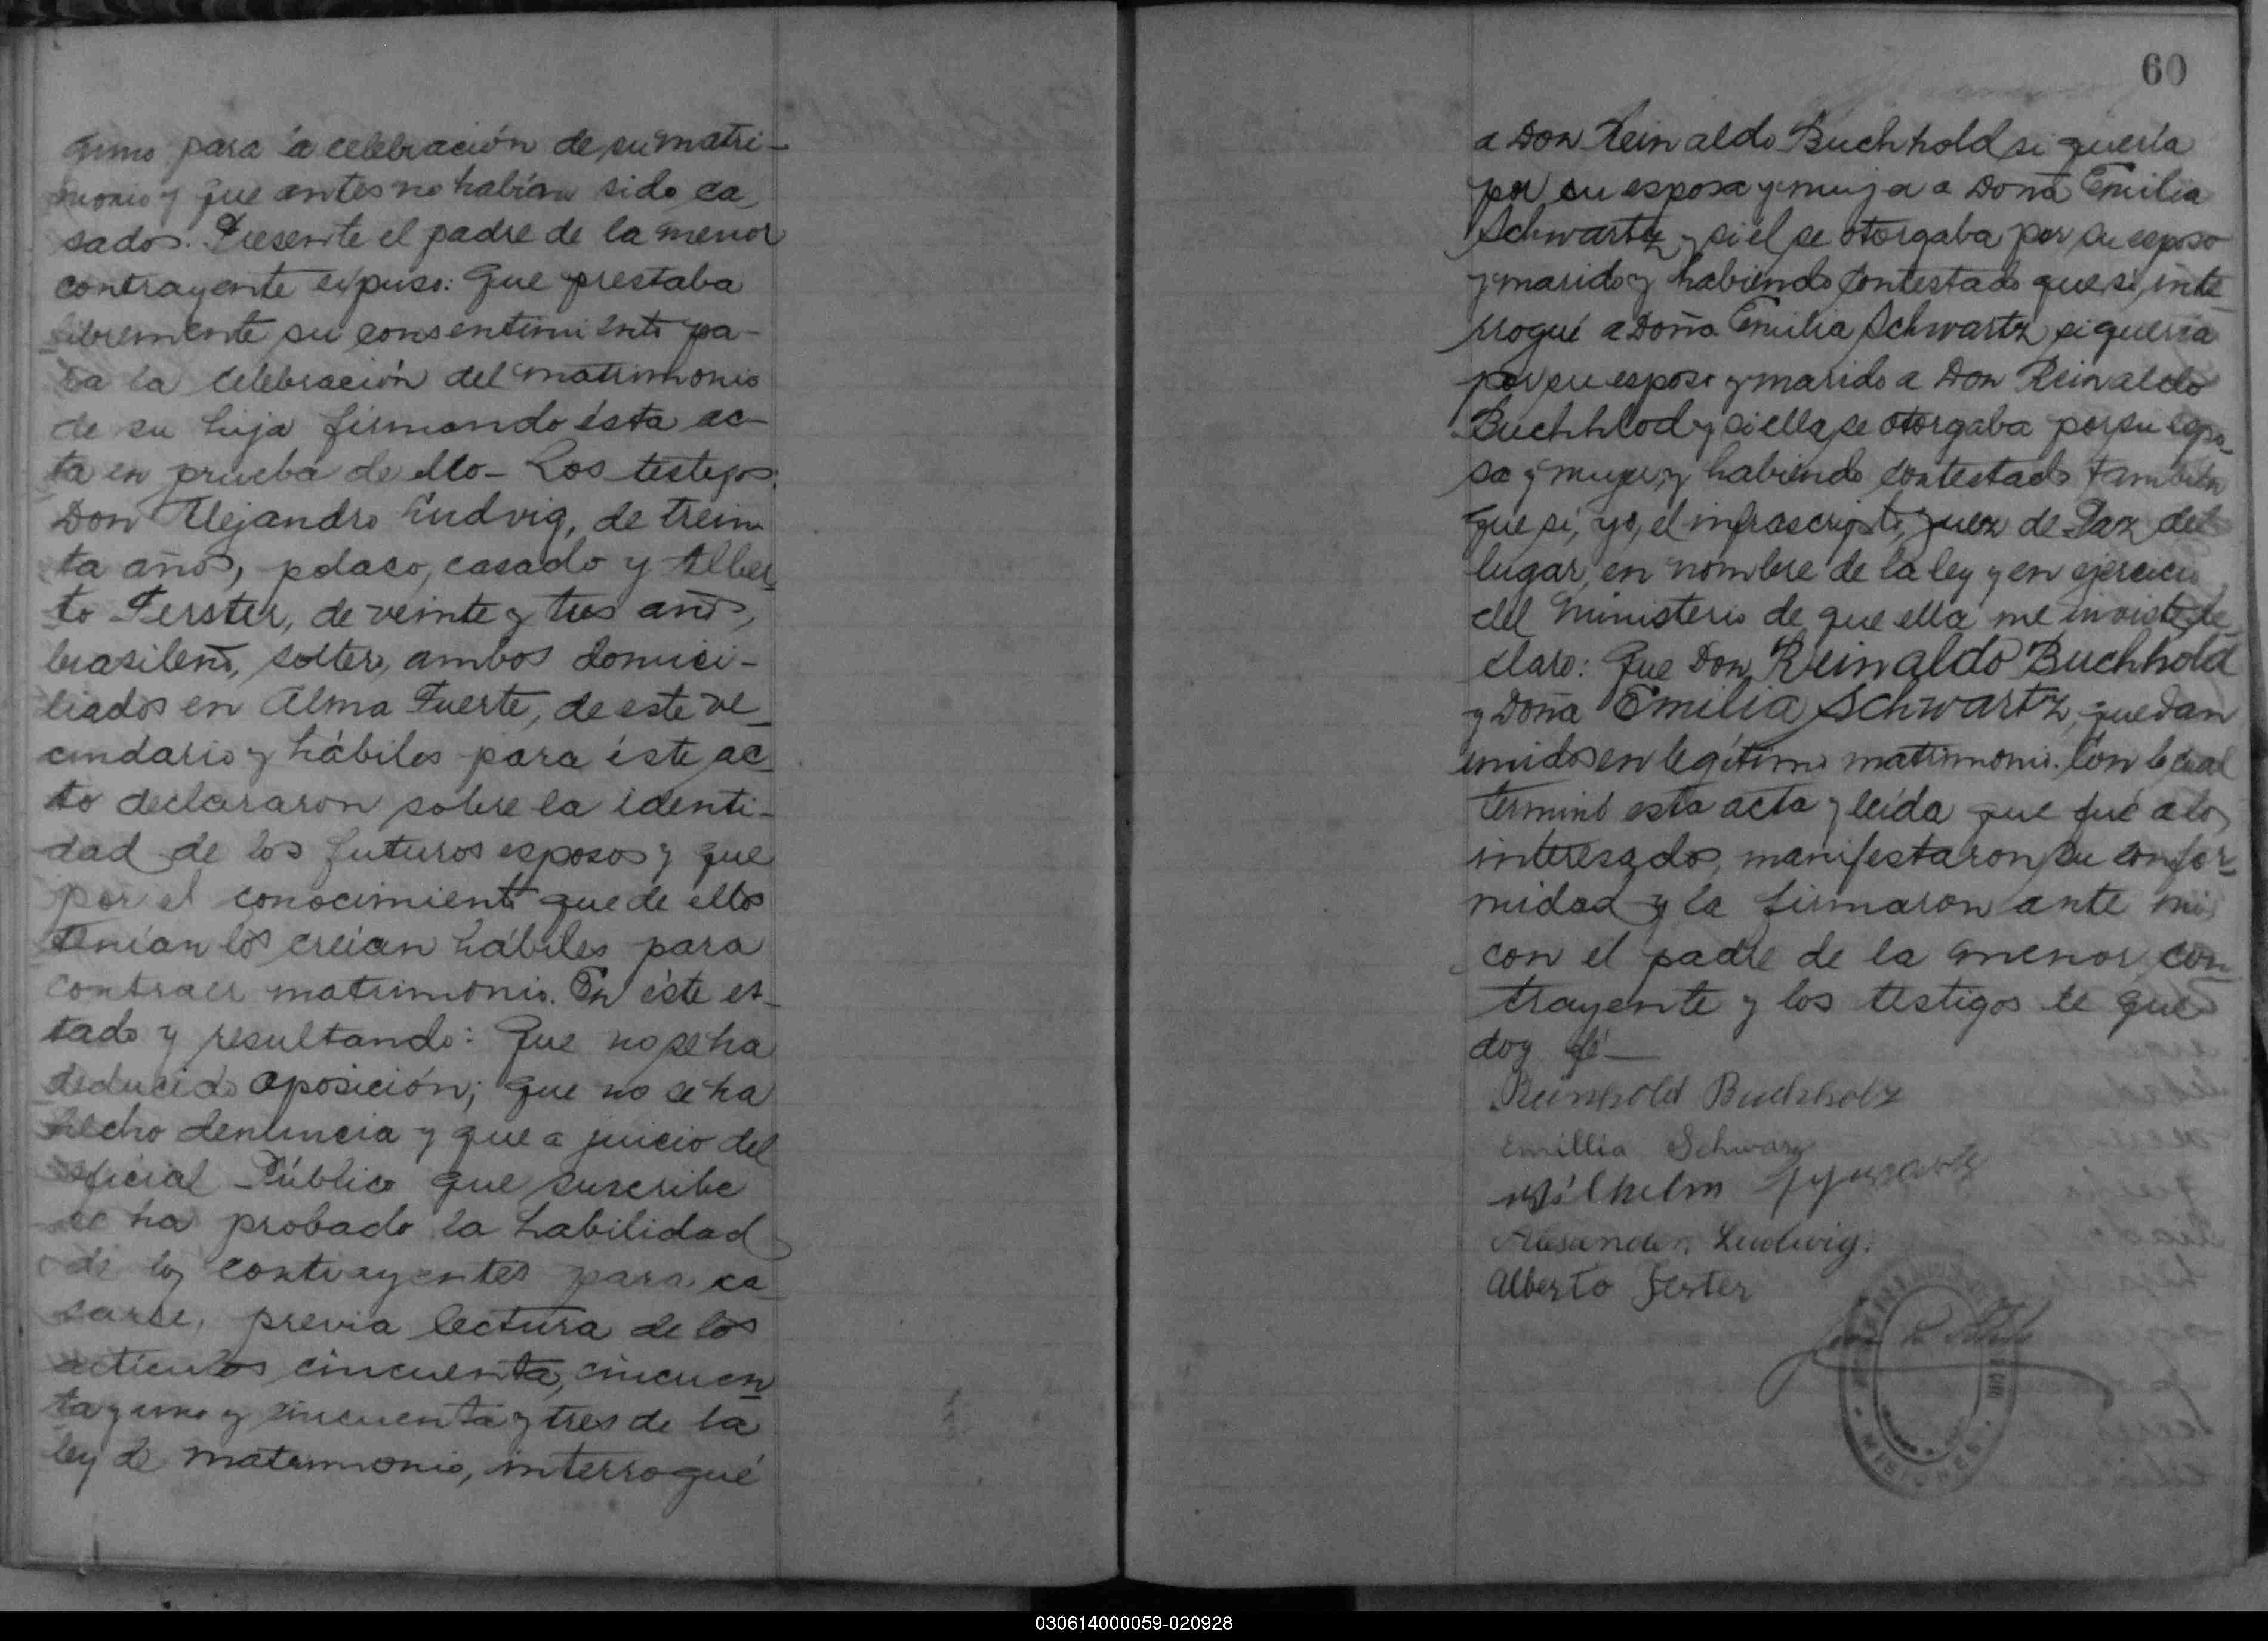 guno para la celebración de su matri-
monio y que antes no habían sido ca
sados. Presente el padre de la menor
contrayente expuso: Que prestaba
libremente su consentimiento pa-
ra la celebración del matrimonio
de su hija firmando ésta ac-
ta en prueba de ello - Los testigos:
Don Alejandro Ludvig, de trein
ta años, polaco, casado y Alber
to Ferster, de veinte y tres años,
brasileño, soltero, ambos domici-
liados en Alma Fuerte, de este ve
cindario y hábiles para éste ac
to declararon sobre la identi-
dad de los futuros esposos y que
por el conocimiento que de ellos
tenían los creían hábiles para
contraer matrimonio. En éste es-
tado y resultando: Que no se ha
deducido oposición; que no se ha
hecho denuncia y que a juicio del
oficial Público que suscribe
se ha probado la habilidad
de los contrayentes para ca
sarse, previa lectura de los
artículos cincuenta, cincuen
ta y uno y cincuenta y tres de la
ley de matrimonio, interrogué
60
a Don Reinaldo Buchhold si quería
por su esposa y mujer a Doña Emilia
Schwartz y si el se otorgaba por su esposo
y marido y habiendo contestado que si, inte
rrogué a Doña Emilia Schwartz si quería
por su esposo y marido a Don Reinaldo
Buchhlod y si ella se otorgaba por su espo
sa y mujer y habiendo contestado también
que si, yo, el infrascripto, Juez de Paz del
lugar, en nombre de la ley y en ejercicio
del Ministerio de que ella me inviste, de
claro: Que Don Reinaldo Buchhold
y Doña Emilia Schwartz, quedan
unidos en legítimo matrimonio. Con lo cual
terminó esta acta y leída que fué a los
interesados, manifestaron su confor-
midad y la firmaron ante mi
con el padre de la menor con
trayente y los testigos de que
doy fé -
Reinhold Buchholz
Emillia Schwarz
Wilhelm
Ludwig.
Alberto Ferster
MISIONES
030614000059-020928